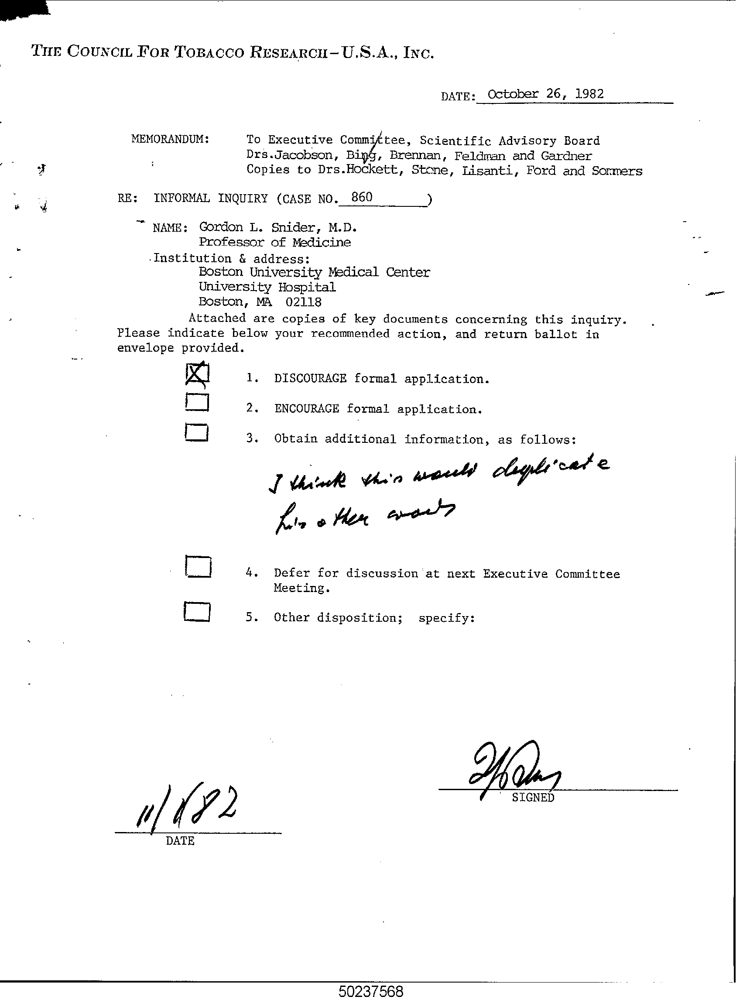 THE COUNCIL FOR TOBACCO RESEARCH-U.S.A., INC.
DATE: October 26, 1982
MEMORANDUM: To Executive Committee, Scientific Advisory Board
Drs.Jacobson, Bing, Brennan, Feldman and Gardner
Copies to Drs.Hockett, Stone, Lisanti, Ford and Sommers
RE: INFORMAL INQUIRY (CASE NO. 860 )
NAME: Gordon L. Snider, M.D.
Professor of Medicine
Institution & address:
Boston University Medical Center
University Hospital
Boston, MA 02118
Attached are copies of key documents concerning this inquiry.
Please indicate below your recommended action, and return ballot in
envelope provided.
1. DISCOURAGE formal application.
2. ENCOURAGE formal application.
3. Obtain additional information, as follows:
I think this would duplicate
his other
4. Defer for discussion at next Executive Committee
Meeting.
5. Other disposition; specify:
SIGNED
11/1/82
DATE
50237568